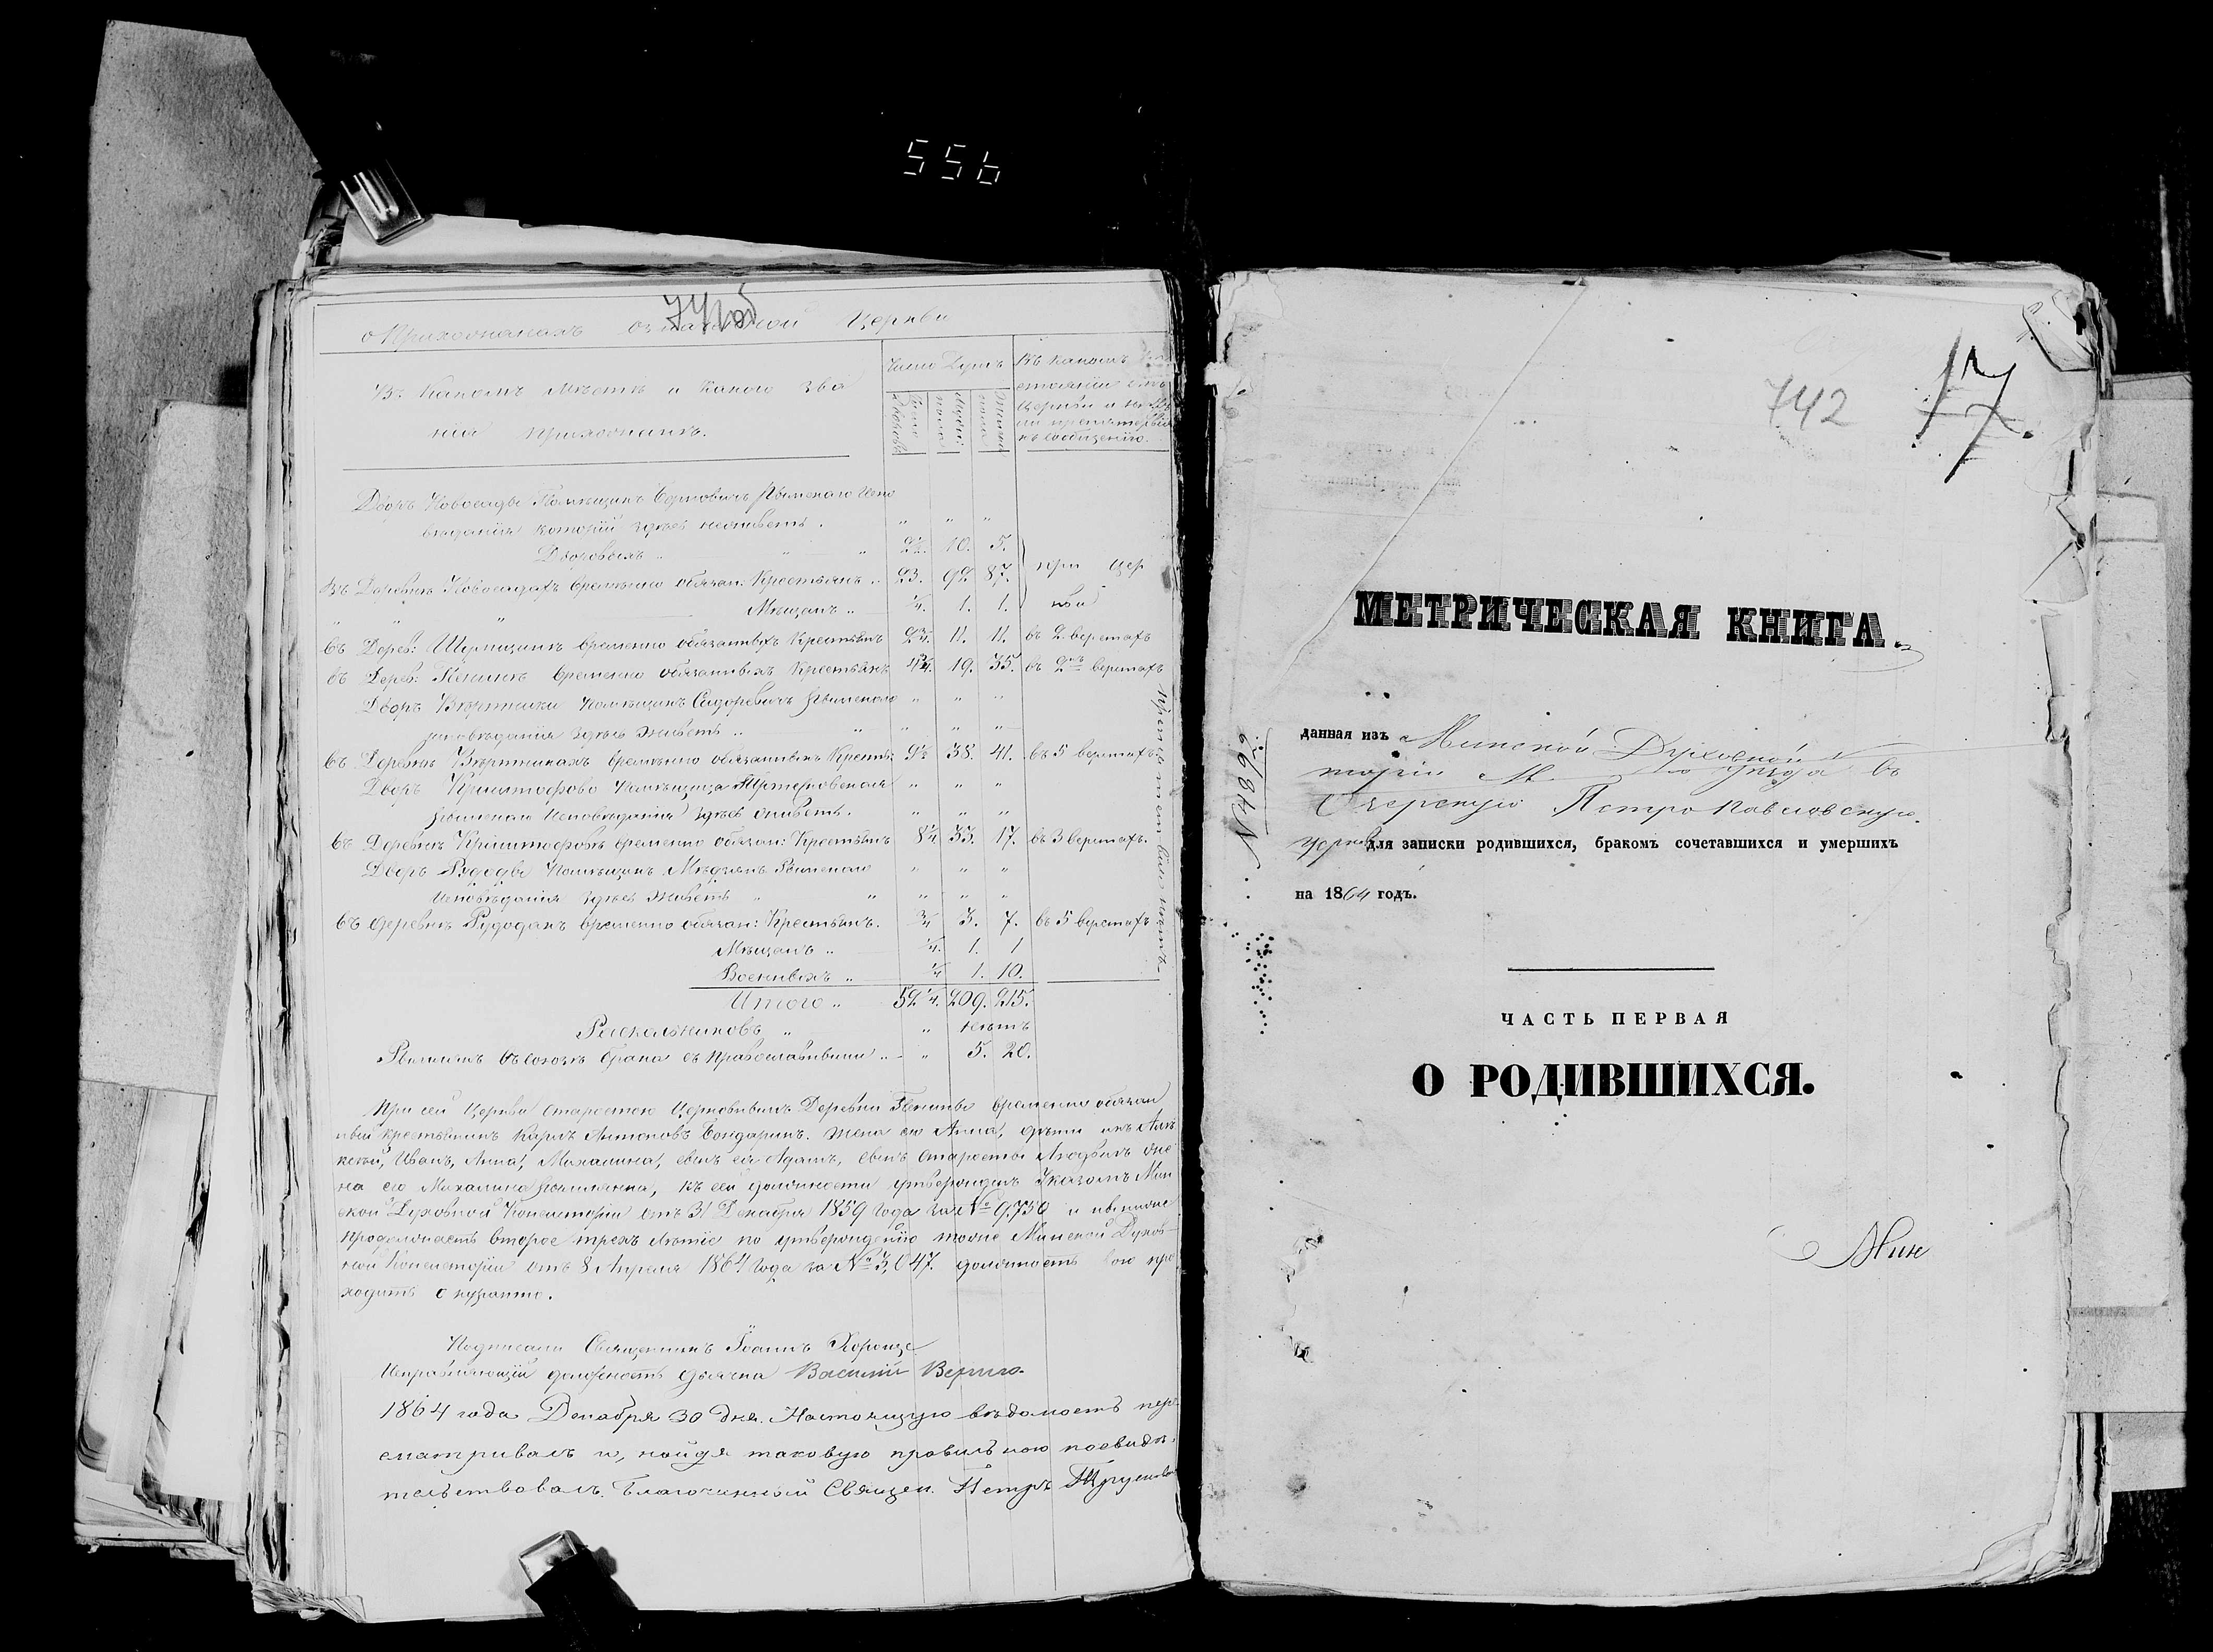 556
741об
о Прихожанахъ означенной Церкви
Въ Какомъ Мѣстѣ и Какого Зва
нія Прихожанъ.
Число Душъ
Число Дворовъ
Мужес: пола
Женска пола
Въ какомъ
стояніи отъ
Церкви и нѣтъ
ли препятствія
къ сообщенію.
Дворъ Новосады Помѣщикъ Римскаго Испо
вѣданія который здѣсь неживетъ. " " "
Дворовыхъ " 2½. 10. 5.
Въ Деревнѣ Новосадахъ временно обязан: Крестьянъ 23. 92. 87. при цер
Мѣщанъ " ¼. 1. 1. кви
въ Дерев: временно обязанныхъ Крестьянъ 2¾. 11. 11. въ 2 верстахъ
въ Дерев: временно обязанныхъ Крестьянъ 4¾. 19. 35. въ 2хъ верстахъ
Дворъ Помѣщикъ Сидоровичъ Римскаго " " "
исповѣданія здѣсь живетъ " " " "
въ Деревнѣ временно обязанныхъ Крест: 9½ 38. 41. въ 5 верстахъ
Дворъ Криштофово Помѣщица " " "
Римскаго Исповѣданія здѣсь живетъ. " " "
въ Деревнѣ Криштофовѣ временно обязан: Крестьянъ 8¼ 33. 17. въ 3 верстахъ.
Дворъ Рудоды Помѣщикъ Римскаго " " "
Исповѣданія здѣсь живетъ " " " "
въ деревнѣ Рудодахъ временно обязан: Крестьянъ. ¾ 3. 7. въ 5 верстахъ
Мѣщанъ " ¼. 1. 1
Военныхъ " ¼ 1. 10.
Итого " 52¼. 209. 215.
Препятствій нѣтъ
Раскольниковъ " " нѣтъ
Римлянъ въ союзѣ брака съ православными " " 5. 20.
При сей Церкви Старостою Церковнымъ Деревни временно обязан
ный крестьянинъ Карлъ Антоновъ Бондаринъ. Жена его Анна, дѣти ихъ Алек
сѣй, Иванъ, Анна, Михалина, сынъ ея Адамъ, сынъ Старосты Людвикъ же
на его Михалина Римлянка, къ сей должности утвержденъ Указомъ Мин
ской Духовной Консисторіи отъ 31 Декабря 1859 года за № 9,750 и нынѣ
продолжаетъ второе трехъ лѣтіе по утвержденію тоже Минской Духов
ной Консисторіи отъ 8 Апреля 1864 года за № 3,047. должность свою про
ходитъ
Подписали Священникъ Іоаннъ
Исправляющій должность дьячка Василій Верыго
1864 года Декабря 30 дня. Настоящую вѣдомость пере
сматривалъ и, найдя таковую правильною посвидѣ
тельствовалъ. Благочинный Священ. Петръ
742
17.
МЕТРИЧЕСКАЯ КНИГА.
данная изъ Минской Духовной
торіи уѣзда въ
Озерскую Петропавловскую
церковь для записки родившихся, бракомъ сочетавшихся и умершихъ
на 1864 годъ.
№ 4899
ЧАСТЬ ПЕРВАЯ
О РОДИВШИХСЯ.
Мин